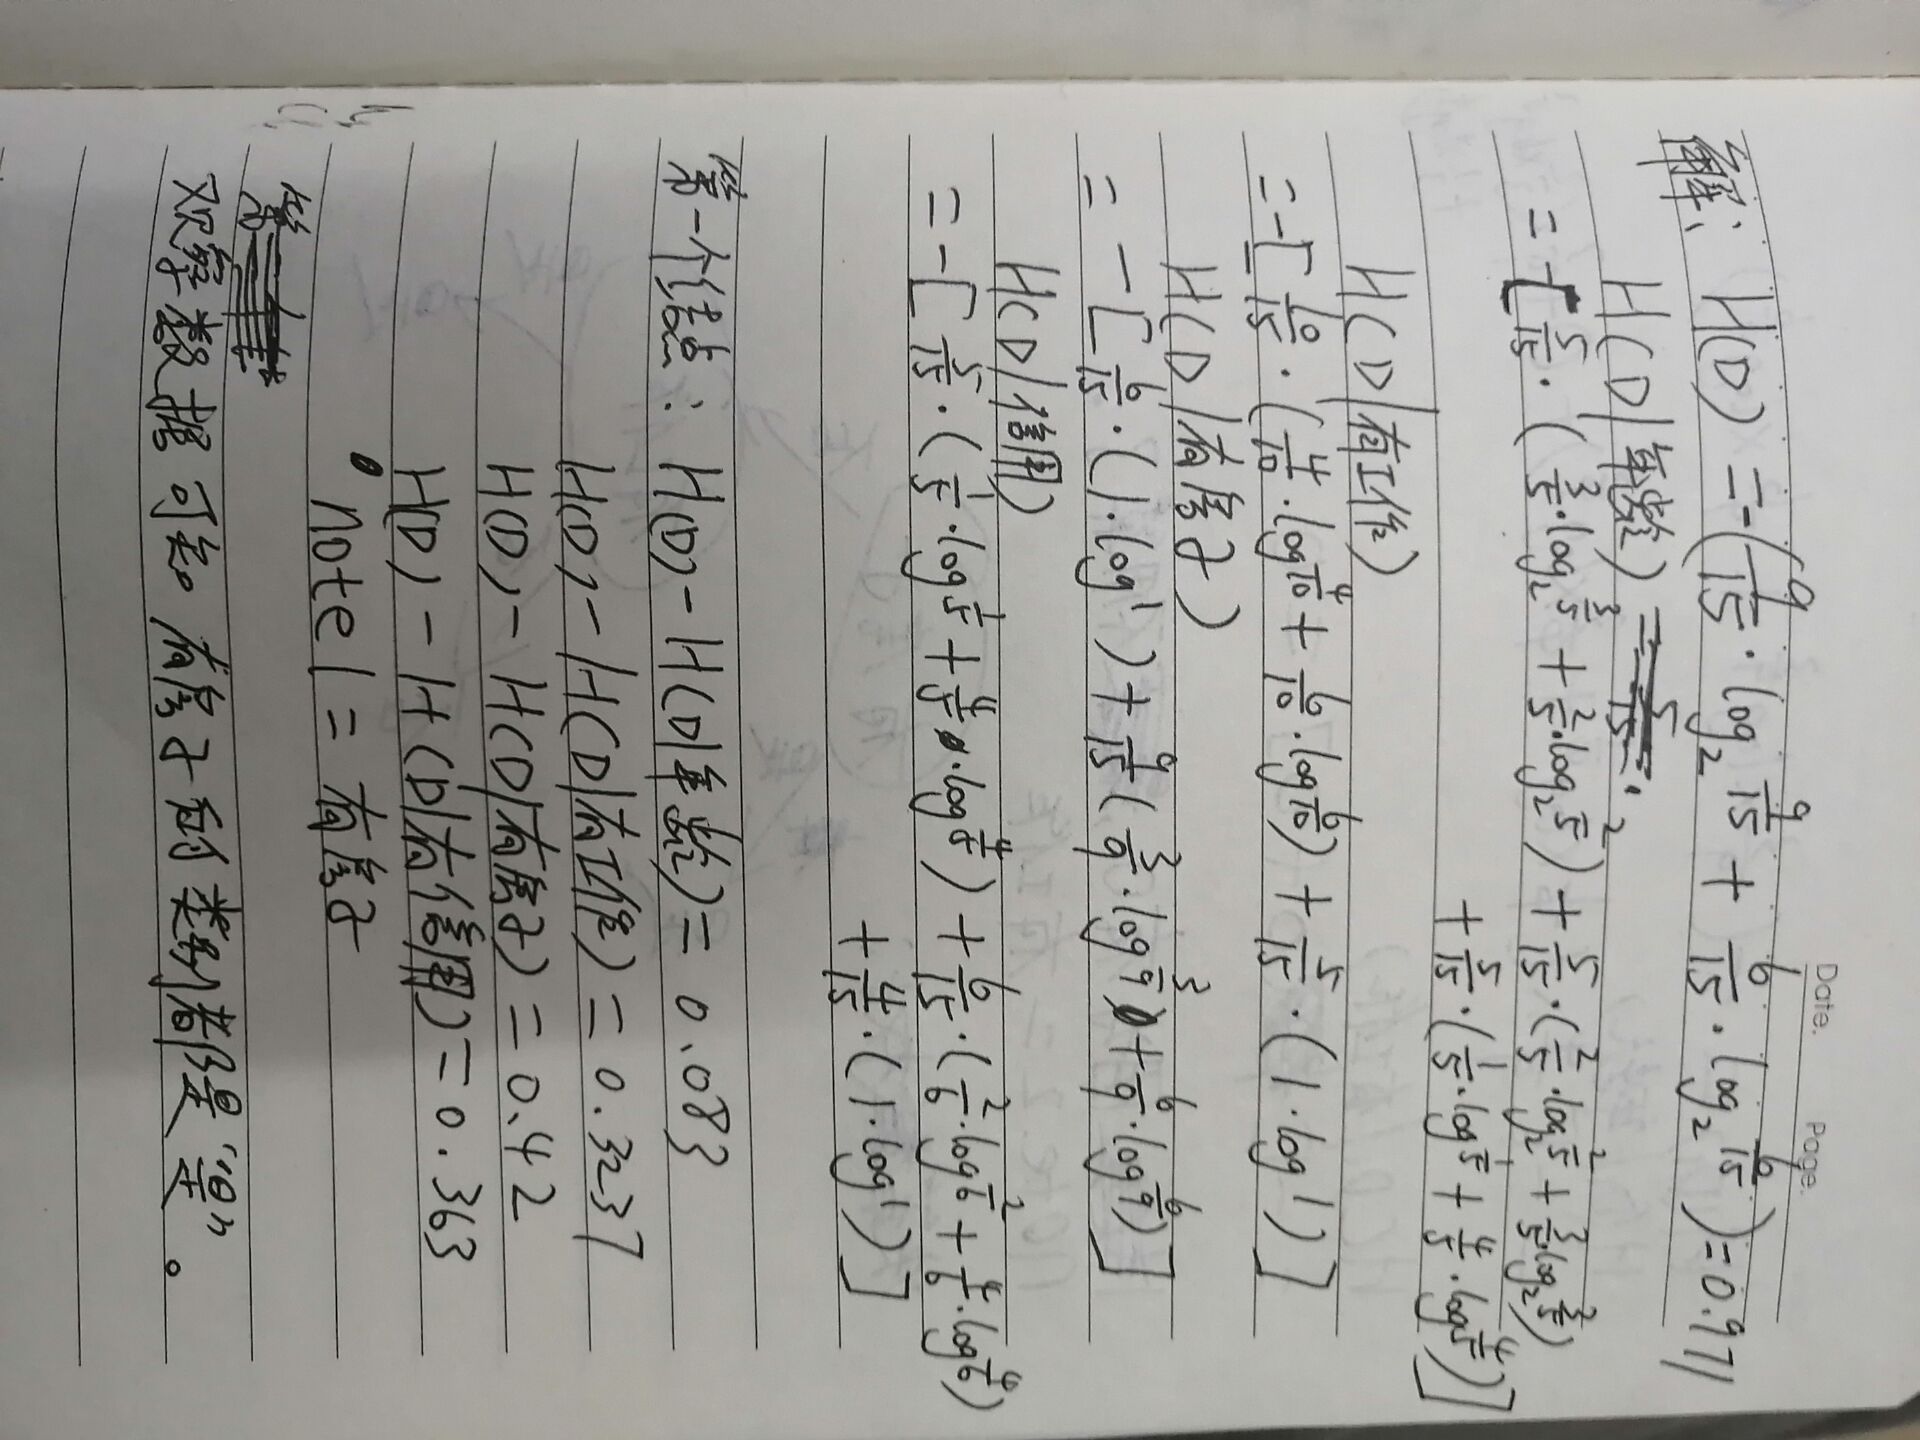 Date. Page.
解: H(D) = -(9/15 · log₂ 9/15 + 6/15 · log₂ 6/15) = 0.971
H(D|年龄)
= -[5/15 · (3/5 · log₂ 3/5 + 2/5 · log₂ 2/5) + 5/15 · (2/5 · log₂ 2/5 + 3/5 · log₂ 3/5)
+ 5/15 · (1/5 · log 1/5 + 4/5 · log 4/5)]
H(D|有工作)
= -[10/15 · (4/10 · log 4/10 + 6/10 · log 6/10) + 5/15 · (1 · log 1)]
H(D|有房子)
= -[6/15 · (1 · log 1) + 9/15 (3/9 · log 3/9 + 6/9 · log 6/9)]
H(D|信用)
= -[5/15 · (1/5 · log 1/5 + 4/5 · log 4/5) + 6/15 · (2/6 · log 2/6 + 4/6 · log 4/6)
+ 4/15 · (1 · log 1)]
第一个结点: H(D) - H(D|年龄) = 0.083
H(D) - H(D|有工作) = 0.3237
H(D) - H(D|有房子) = 0.42
H(D) - H(D|有信用) = 0.363
note1 = 有房子
观察数据可知 有房子的类别都是“是”。